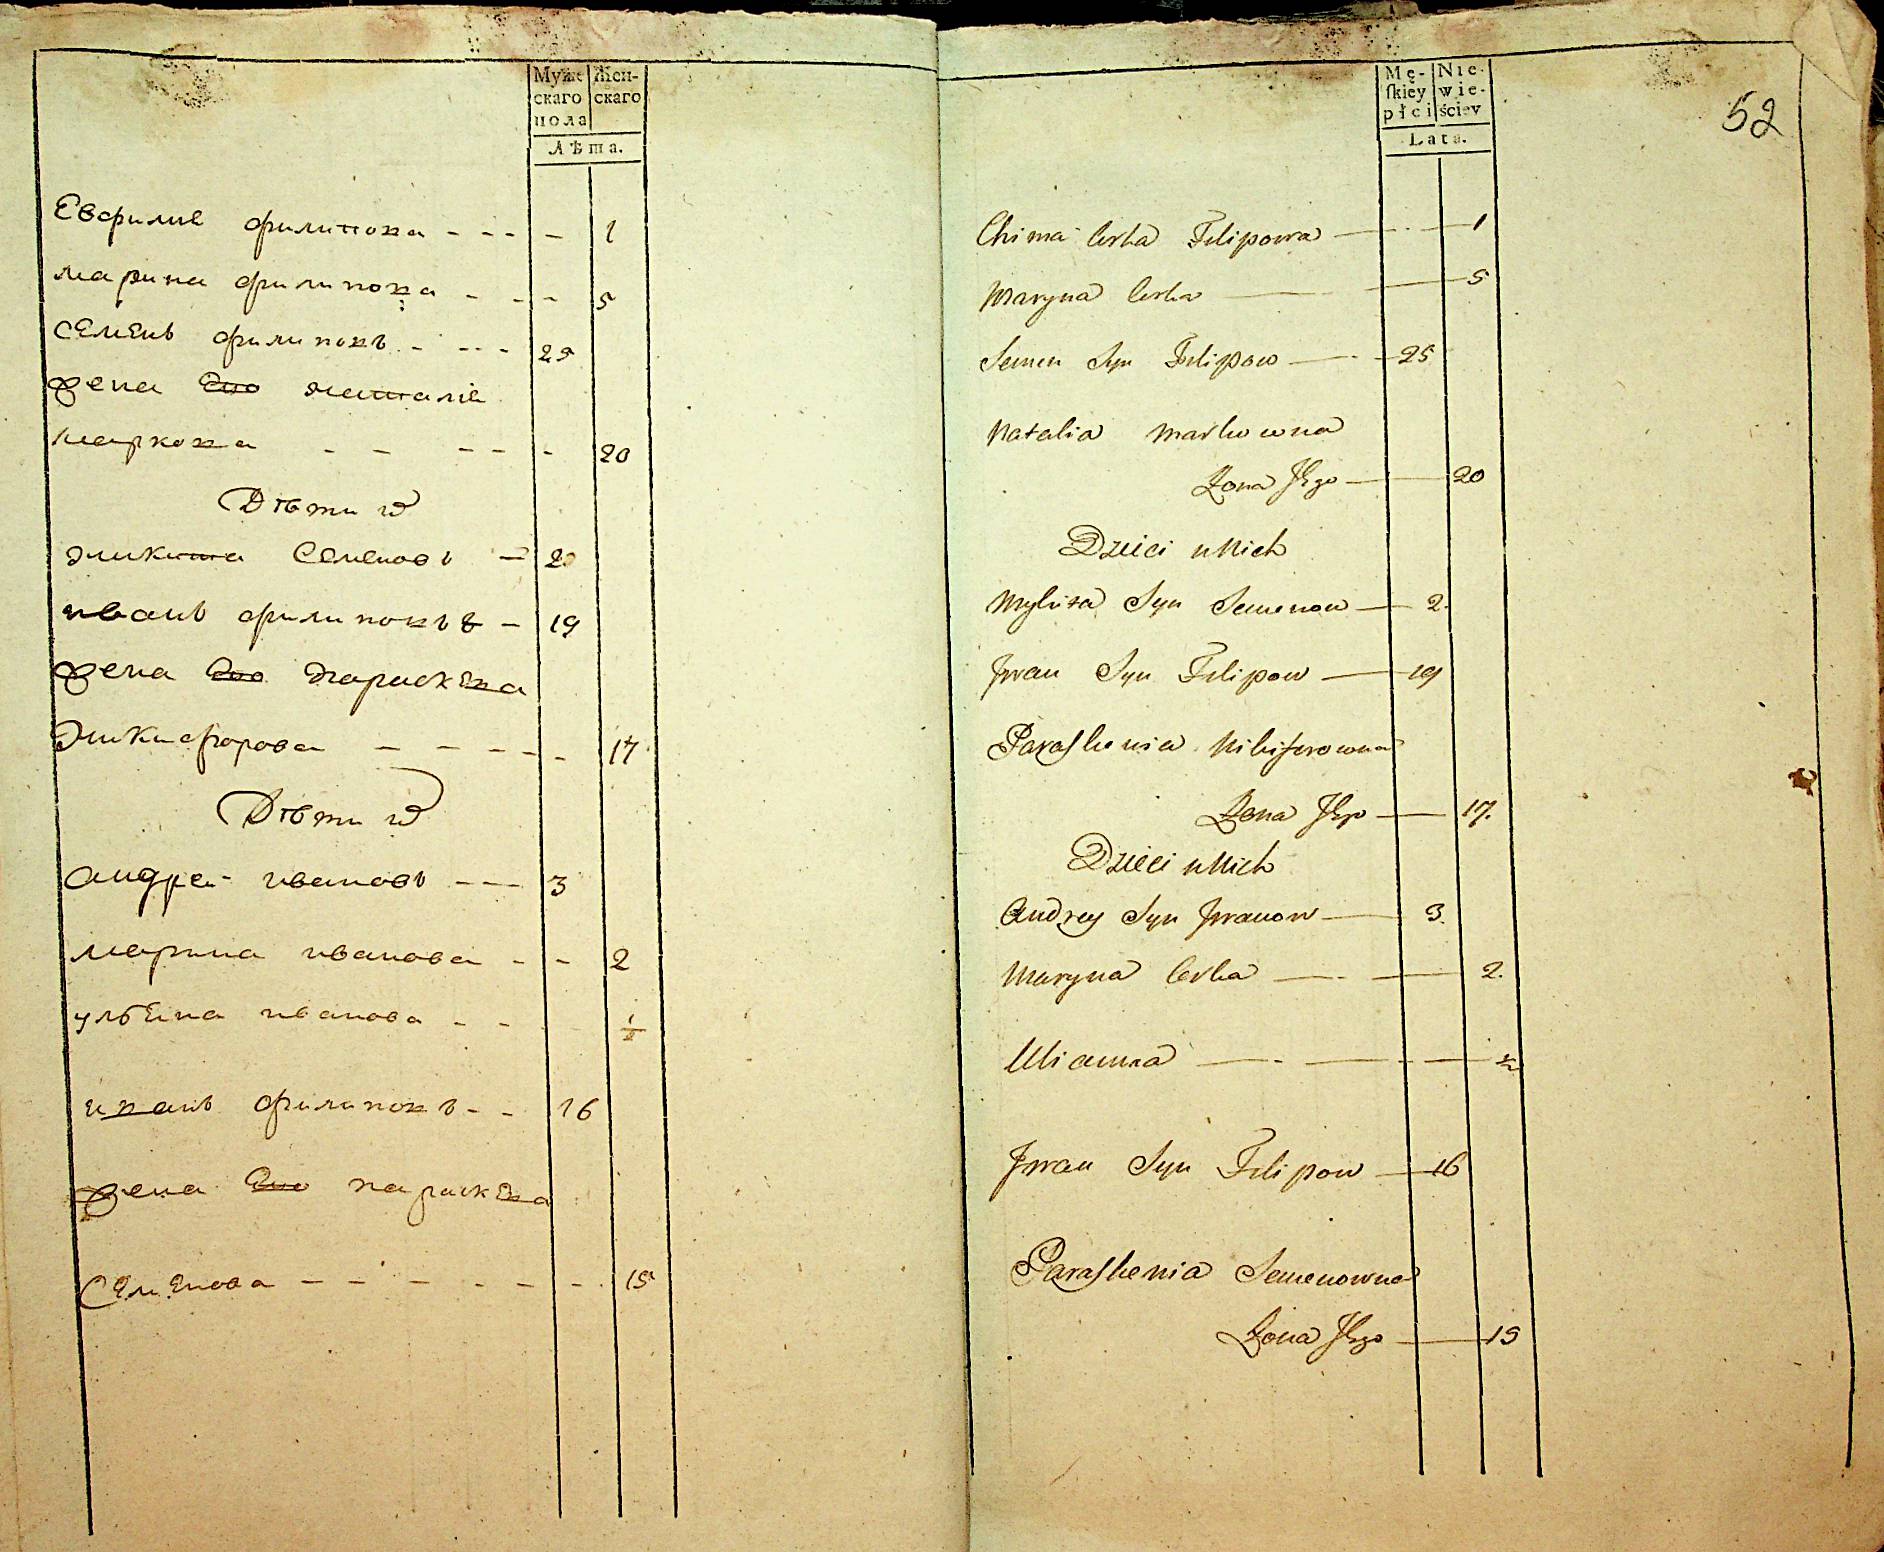 Муже Жен-
скаго скаго
пола
Лѣта.
Евфимие филипова - - - - 1
марина филипова - - - 5
семенъ филиповъ - - - 25
жена Его наталіе
маркова - - - - - 20
Дѣти ихъ
никита Семеновъ - 2
иванъ филиповъ - 19
жена Его парасковиа
никифорова - - - - - 17
Дѣти ихъ
андреи ивановъ - - - 3
марина иванова - - 2
улѣяна иванова - - ½
иванъ филиповъ - - 16
жена Его парасковиа
Семенова - - - - - - 15
52
Mę- Nie-
skiey wie-
płci ściey
Lata.
Chima Corka Filipowa — 1
Maryna Corka — 5
Semen Syn Filipow — 25
Natalia Markowna
Zona Jego — 20
Dzieci u Nich
Mykita Syn Semenow — 2.
Jwan Syn Filipow — 19
Paraskewia Nikiforowna
Zona Jego — 17.
Dzieci u Nich
Andrey Syn Jwanow — 3.
Maryna Corka — 2.
Ulianna — ½
Jwan Syn Filipow — 16
Paraskewia Semenowna
Zona Jego — 15